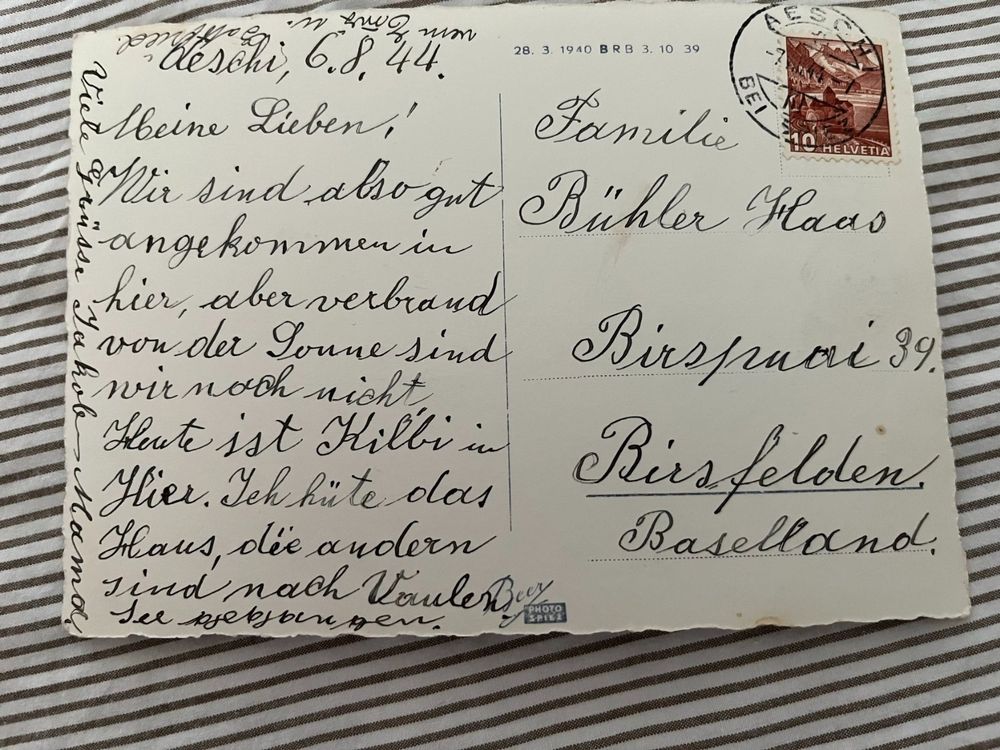 Aeschi, 6.8.44.
Meine Lieben!
Wir sind also gut
angekommen in
hier, aber verbrand
von der Sonne sind
wir noch nicht,
Heute ist Kilbi in
Hier. Ich hüte das
Haus, die andern
sind nach
See gegangen.
Viele Grüsse Jakob - Mama
vom
u.
Gottfried.
28. 3. 1940 BRB 3. 10 39
AESCHI
BEI
10 HELVETIA
Familie
Bühler Haas
Birsquai 39.
Birsfelden.
Baselland.
Beer
PHOTO
SPIEZ